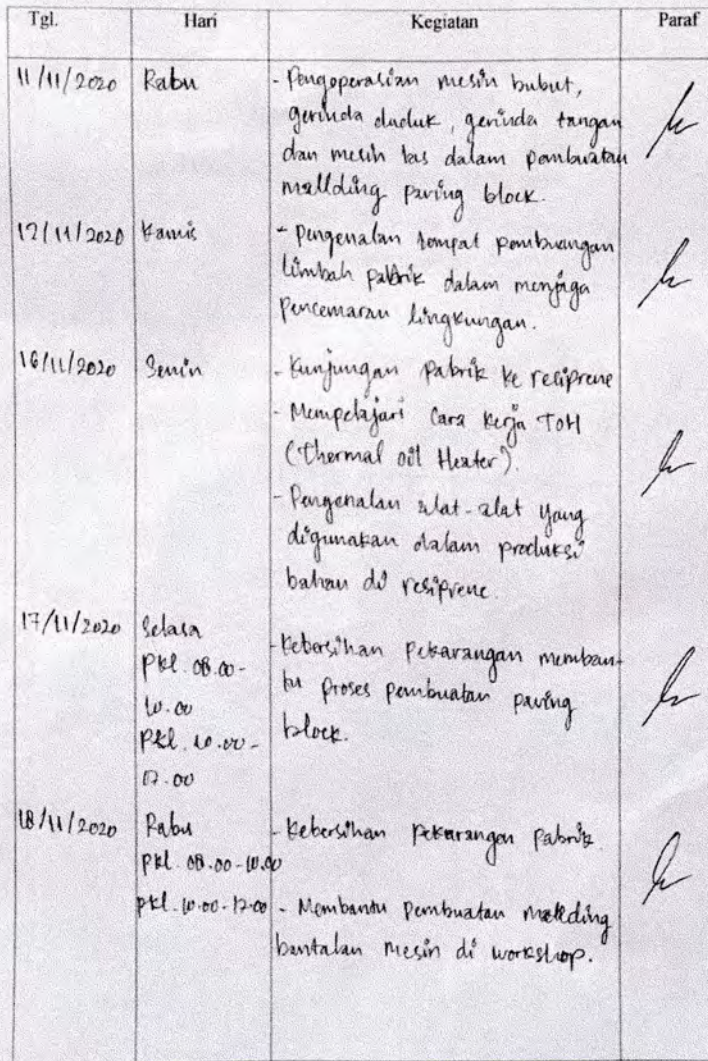 Tgl. Hari Kegiatan Paraf
11/11/2020 Rabu - Pengoperasian mesin bubut,
gerinda duduk, gerinda tangan
dan mesin las dalam pembuatan
mallding paving block.
12/11/2020 Kamis - Pengenalan tempat pembuangan
limbah pabrik dalam menjaga
pencemaran lingkungan.
16/11/2020 Senin - Kunjungan pabrik ke resiprene
- Mempelajari cara kerja TOH
(Thermal oil Heater).
- Pengenalan alat-alat yang
digunakan dalam produksi
bahan di resiprene.
17/11/2020 Selasa
Pkl. 08.00- - Kebersihan pekarangan memban-
10.00 tu proses pembuatan paving
Pkl. 10.00- block.
17.00
18/11/2020 Rabu - Kebersihan pekarangan pabrik.
pkl. 08.00-10.00
pkl. 10.00-17.00 - Membantu pembuatan mallding
bantalan mesin di workshop.